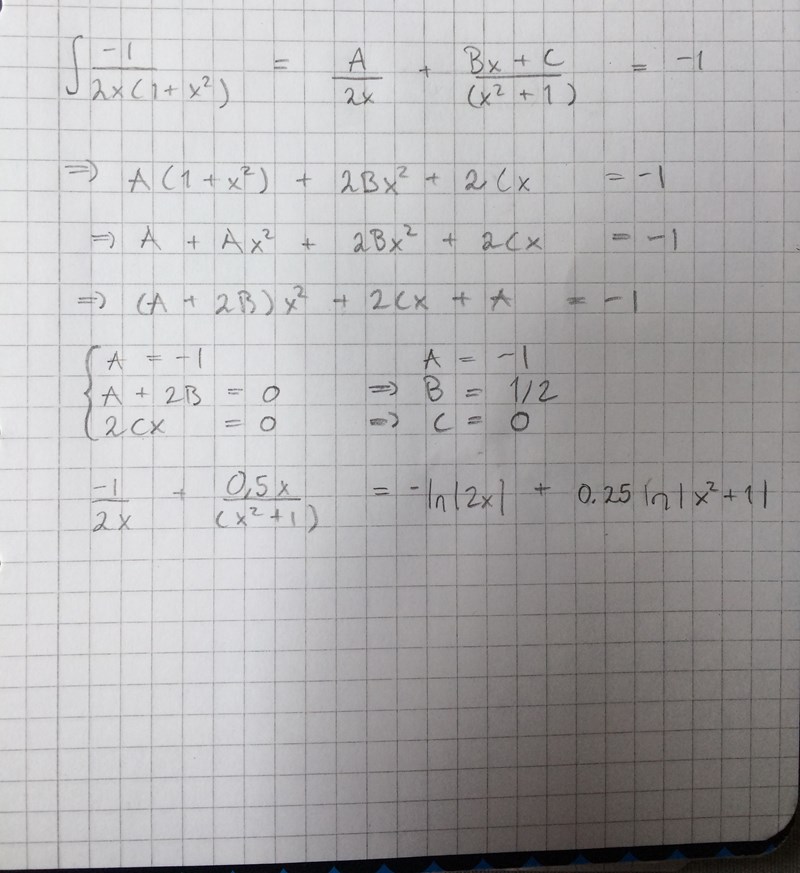 ∫ -1/(2x(1+x²)) = A/(2x) + (Bx + C)/(x² + 1) = -1
⇒ A(1+x²) + 2Bx² + 2Cx = -1
⇒ A + Ax² + 2Bx² + 2Cx = -1
⇒ (A + 2B)x² + 2Cx + A = -1
{ A = -1 A = -1
A + 2B = 0 ⇒ B = 1/2
2Cx = 0 ⇒ C = 0
-1/(2x) + 0,5x/(x²+1) = -ln|2x| + 0.25 ln|x²+1|